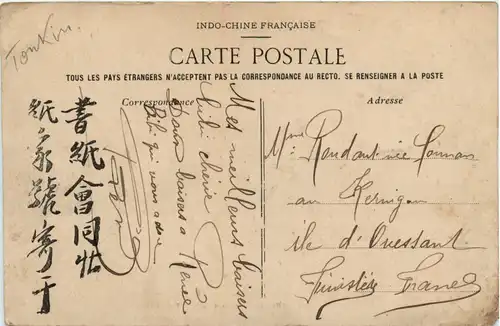 Tonkin.
INDO-CHINE FRANÇAISE
CARTE POSTALE
TOUS LES PAYS ÉTRANGERS N'ACCEPTENT PAS LA CORRESPONDANCE AU RECTO. SE RENSEIGNER A LA POSTE
Correspondance
Adresse
書紙會同
紙家號寄
Mes meilleurs baisers
chérie
Doux baisers a Renée
Bibi qui vous adore
Mme
Kerinou
île d'Ouessant
Finistère France